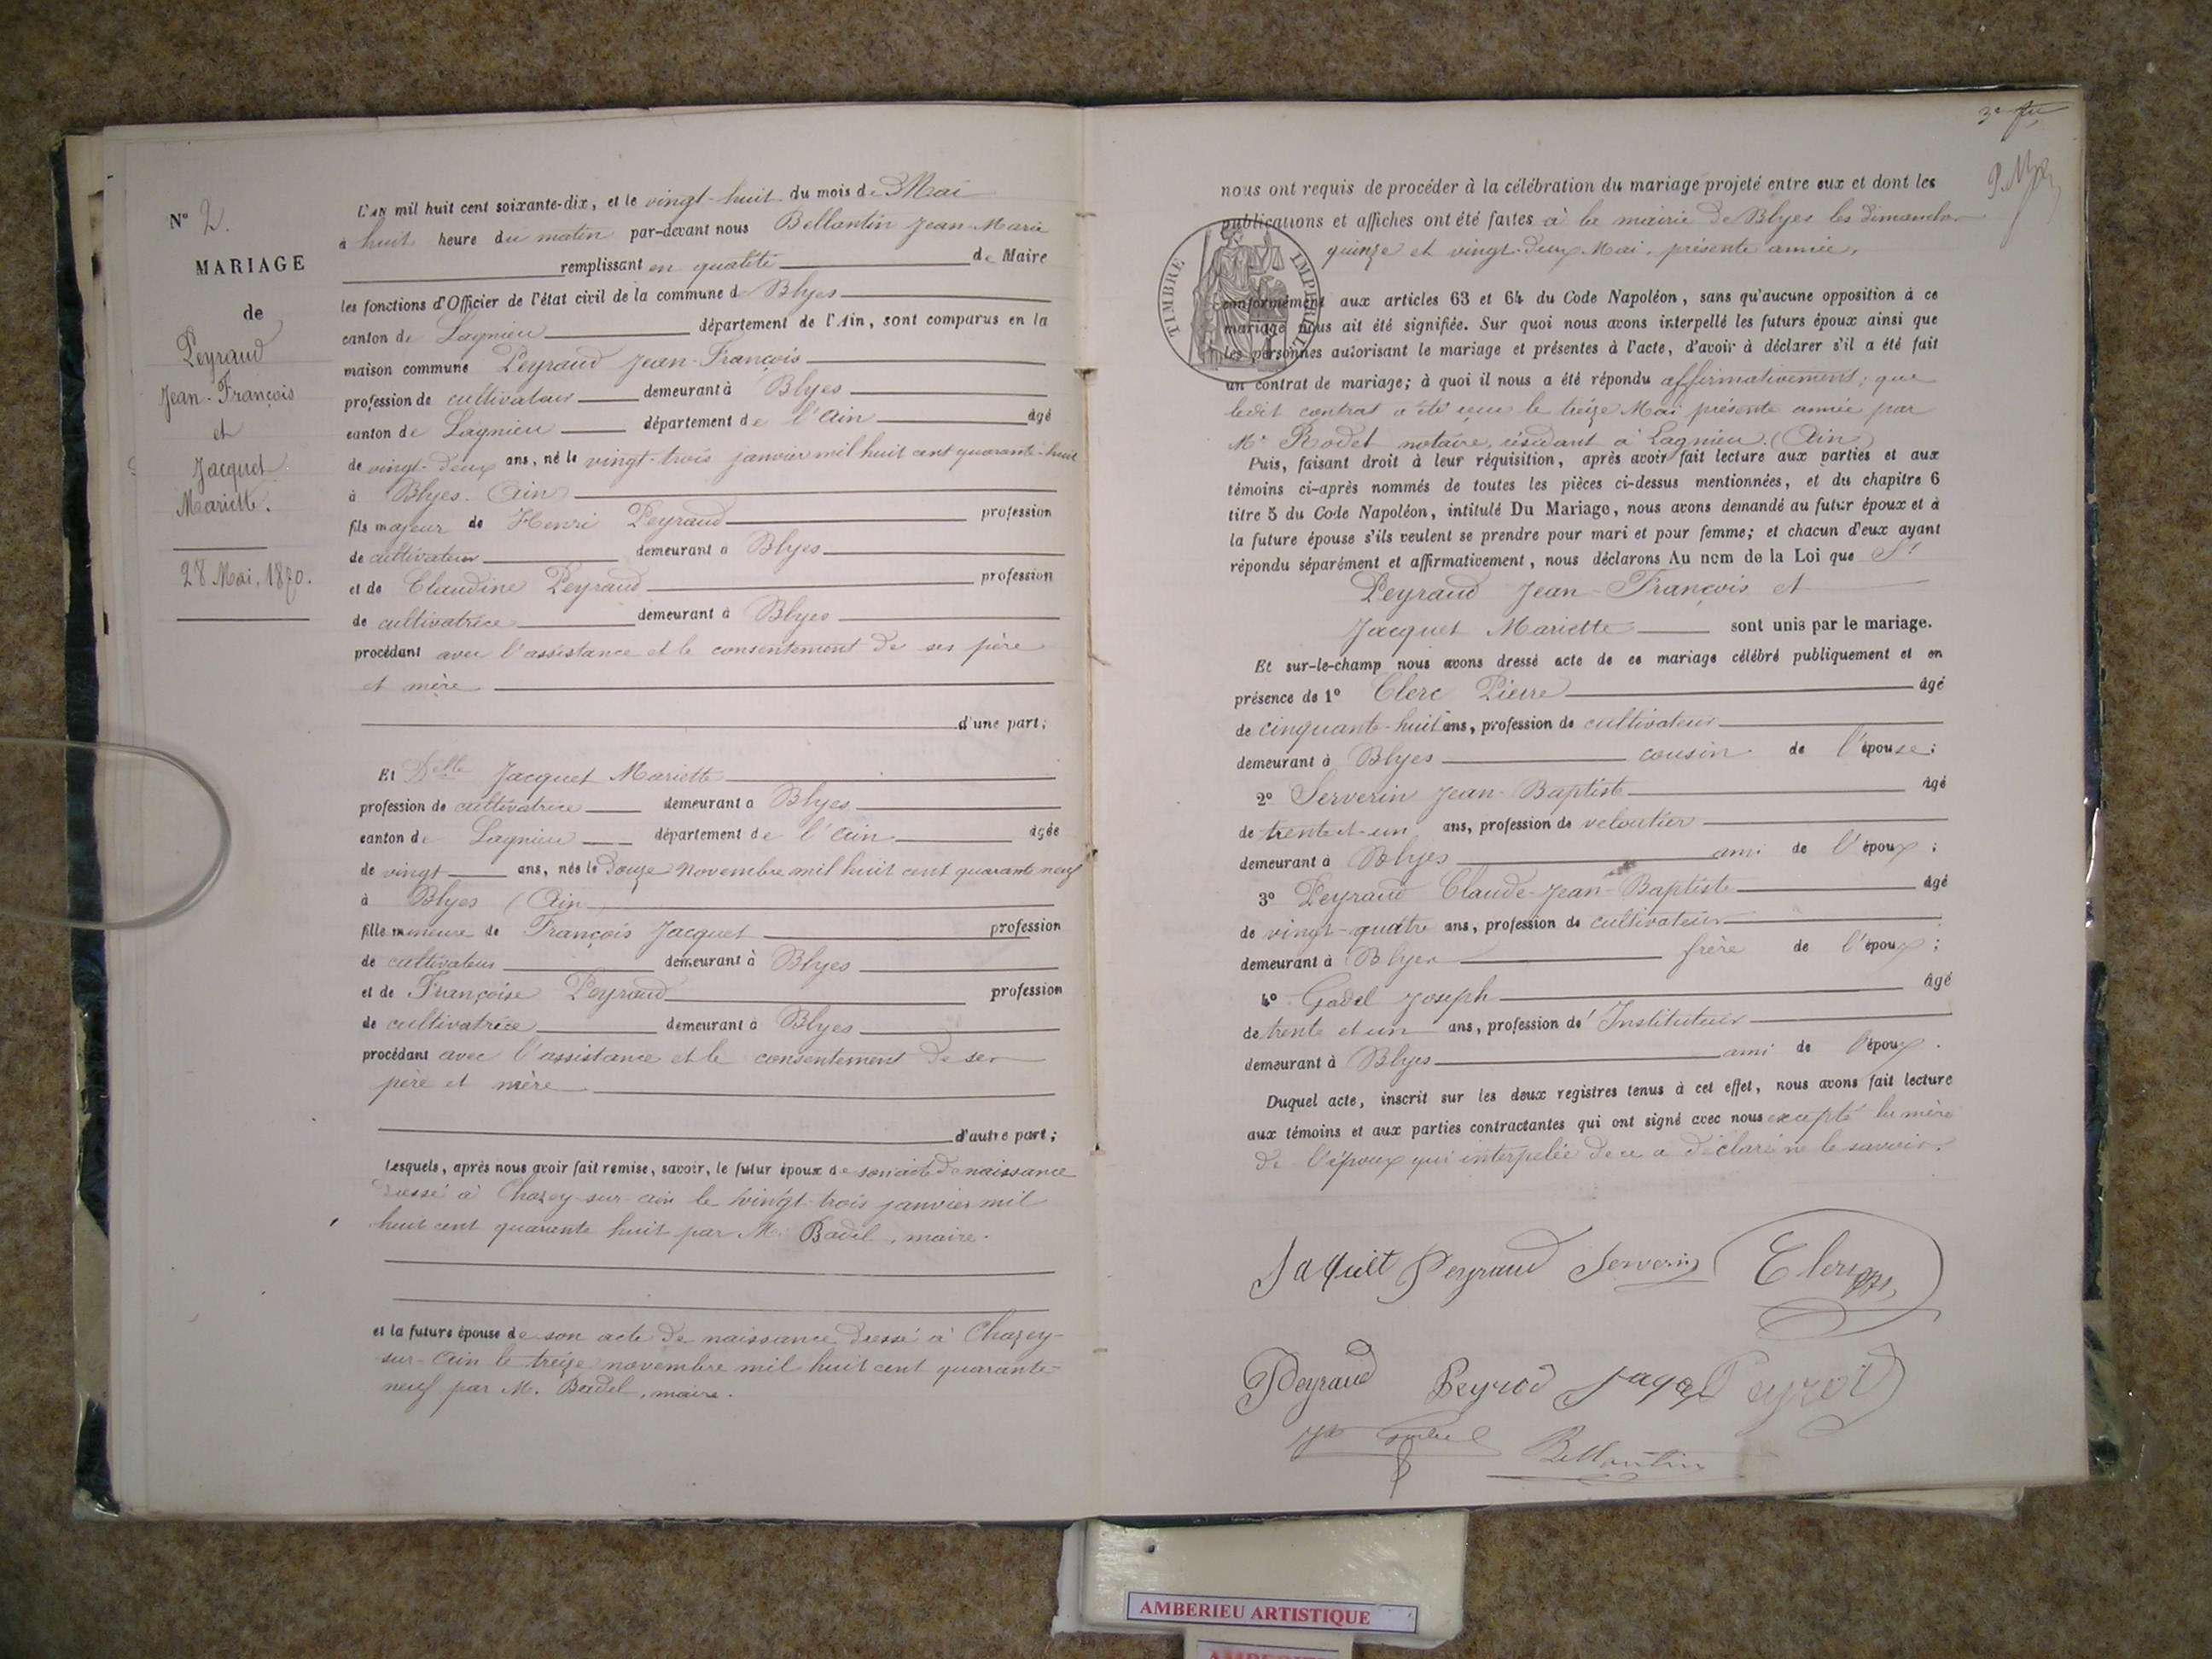 N° 2.
MARIAGE
de
Peyraud
Jean-François
et
Jacquet
Mariette.
28 Mai, 1870.
L'AN mil huit cent soixante-dix, et le vingt-huit du mois de Mai
à huit heure du matin par-devant nous Bellantin Jean-Marie
remplissant en qualité de Maire
les fonctions d'Officier de l'état civil de la commune de Blyes
canton de Lagnieu département de l'Ain, sont comparus en la
maison commune Peyraud Jean-François
profession de cultivateur demeurant à Blyes
canton de Lagnieu département de l'Ain âgé
de vingt-deux ans, né le vingt-trois janvier mil huit cent quarante-huit
à Blyes. (Ain)
fils majeur de Henri Peyraud profession
de cultivateur demeurant à Blyes
et de Claudine Peyraud profession
de cultivatrice demeurant à Blyes
procédant avec l'assistance et le consentement de ses père
et mère
d'une part;
Et Delle Jacquet Mariette
profession de cultivatrice demeurant à Blyes
canton de Lagnieu département de l'Ain âgée
de vingt ans, née le douze Novembre mil huit cent quarante neuf
à Blyes (Ain)
fille mineure de François Jacquet profession
de cultivateur demeurant à Blyes
et de Françoise Peyraud profession
de cultivatrice demeurant à Blyes
procédant avec l'assistance et le consentement de ses
père et mère
d'autre part;
Lesquels, après nous avoir fait remise, savoir, le futur époux de son acte de naissance
dressé à Chazey-sur-Ain le vingt-trois janvier mil
huit cent quarante huit par M. Badel, maire.
et la future épouse de son acte de naissance dressé à Chazey-
sur-Ain le treize novembre mil huit cent quarante-
neuf par M. Badel, maire.
3e
nous ont requis de procéder à la célébration du mariage projeté entre eux et dont les
publications et affiches ont été faites à la mairie de Blyes les dimanches
quinze et vingt-deux Mai, présente année,
TIMBRE IMPERIAL
conformément aux articles 63 et 64 du Code Napoléon, sans qu'aucune opposition à ce
mariage nous ait été signifiée. Sur quoi nous avons interpellé les futurs époux ainsi que
les personnes autorisant le mariage et présentes à l'acte, d'avoir à déclarer s'il a été fait
un contrat de mariage; à quoi il nous a été répondu affirmativement; que
ledit contrat a été reçu le treize Mai présente année par
Me Rodet notaire, résidant à Lagnieu. (Ain)
Puis, faisant droit à leur réquisition, après avoir fait lecture aux parties et aux
témoins ci-après nommés de toutes les pièces ci-dessus mentionnées, et du chapitre 6
titre 5 du Code Napoléon, intitulé Du Mariage, nous avons demandé au futur époux et à
la future épouse s'ils veulent se prendre pour mari et pour femme; et chacun d'eux ayant
répondu séparément et affirmativement, nous déclarons Au nom de la Loi que Sr
Peyraud Jean-François et
Jacquet Mariette sont unis par le mariage.
Et sur-le-champ nous avons dressé acte de ce mariage célébré publiquement et en
présence de 1° Clerc Pierre âgé
de cinquante-huit ans, profession de cultivateur
demeurant à Blyes cousin de l'épouse;
2° Serverin Jean-Baptiste âgé
de trente-et-un ans, profession de veloutier
demeurant à Blyes ami de l'époux;
3° Peyraud Claude-Jean-Baptiste âgé
de vingt-quatre ans, profession de cultivateur
demeurant à Blyes frère de l'époux;
4° Gadel Joseph âgé
de trente et un ans, profession d'Instituteur
demeurant à Blyes ami de l'époux.
Duquel acte, inscrit sur les deux registres tenus à cet effet, nous avons fait lecture
aux témoins et aux parties contractantes qui ont signé avec nous excepté la mère
de l'époux qui interpelée de ce a déclaré ne le savoir.
Jaquiet Peyraud Serverin Clerc
Peyraud Peyrod Jaqet Peyrod
Bellantin
AMBERIEU ARTISTIQUE